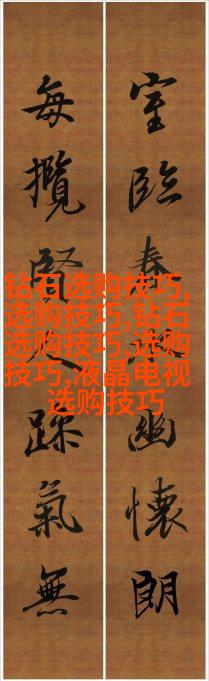 室臨春幽懷朗
每攬賢人躁氣無
钻石选购技巧,
选购技巧,钻石
选购技巧,选购
技巧,液晶电视
选购技巧